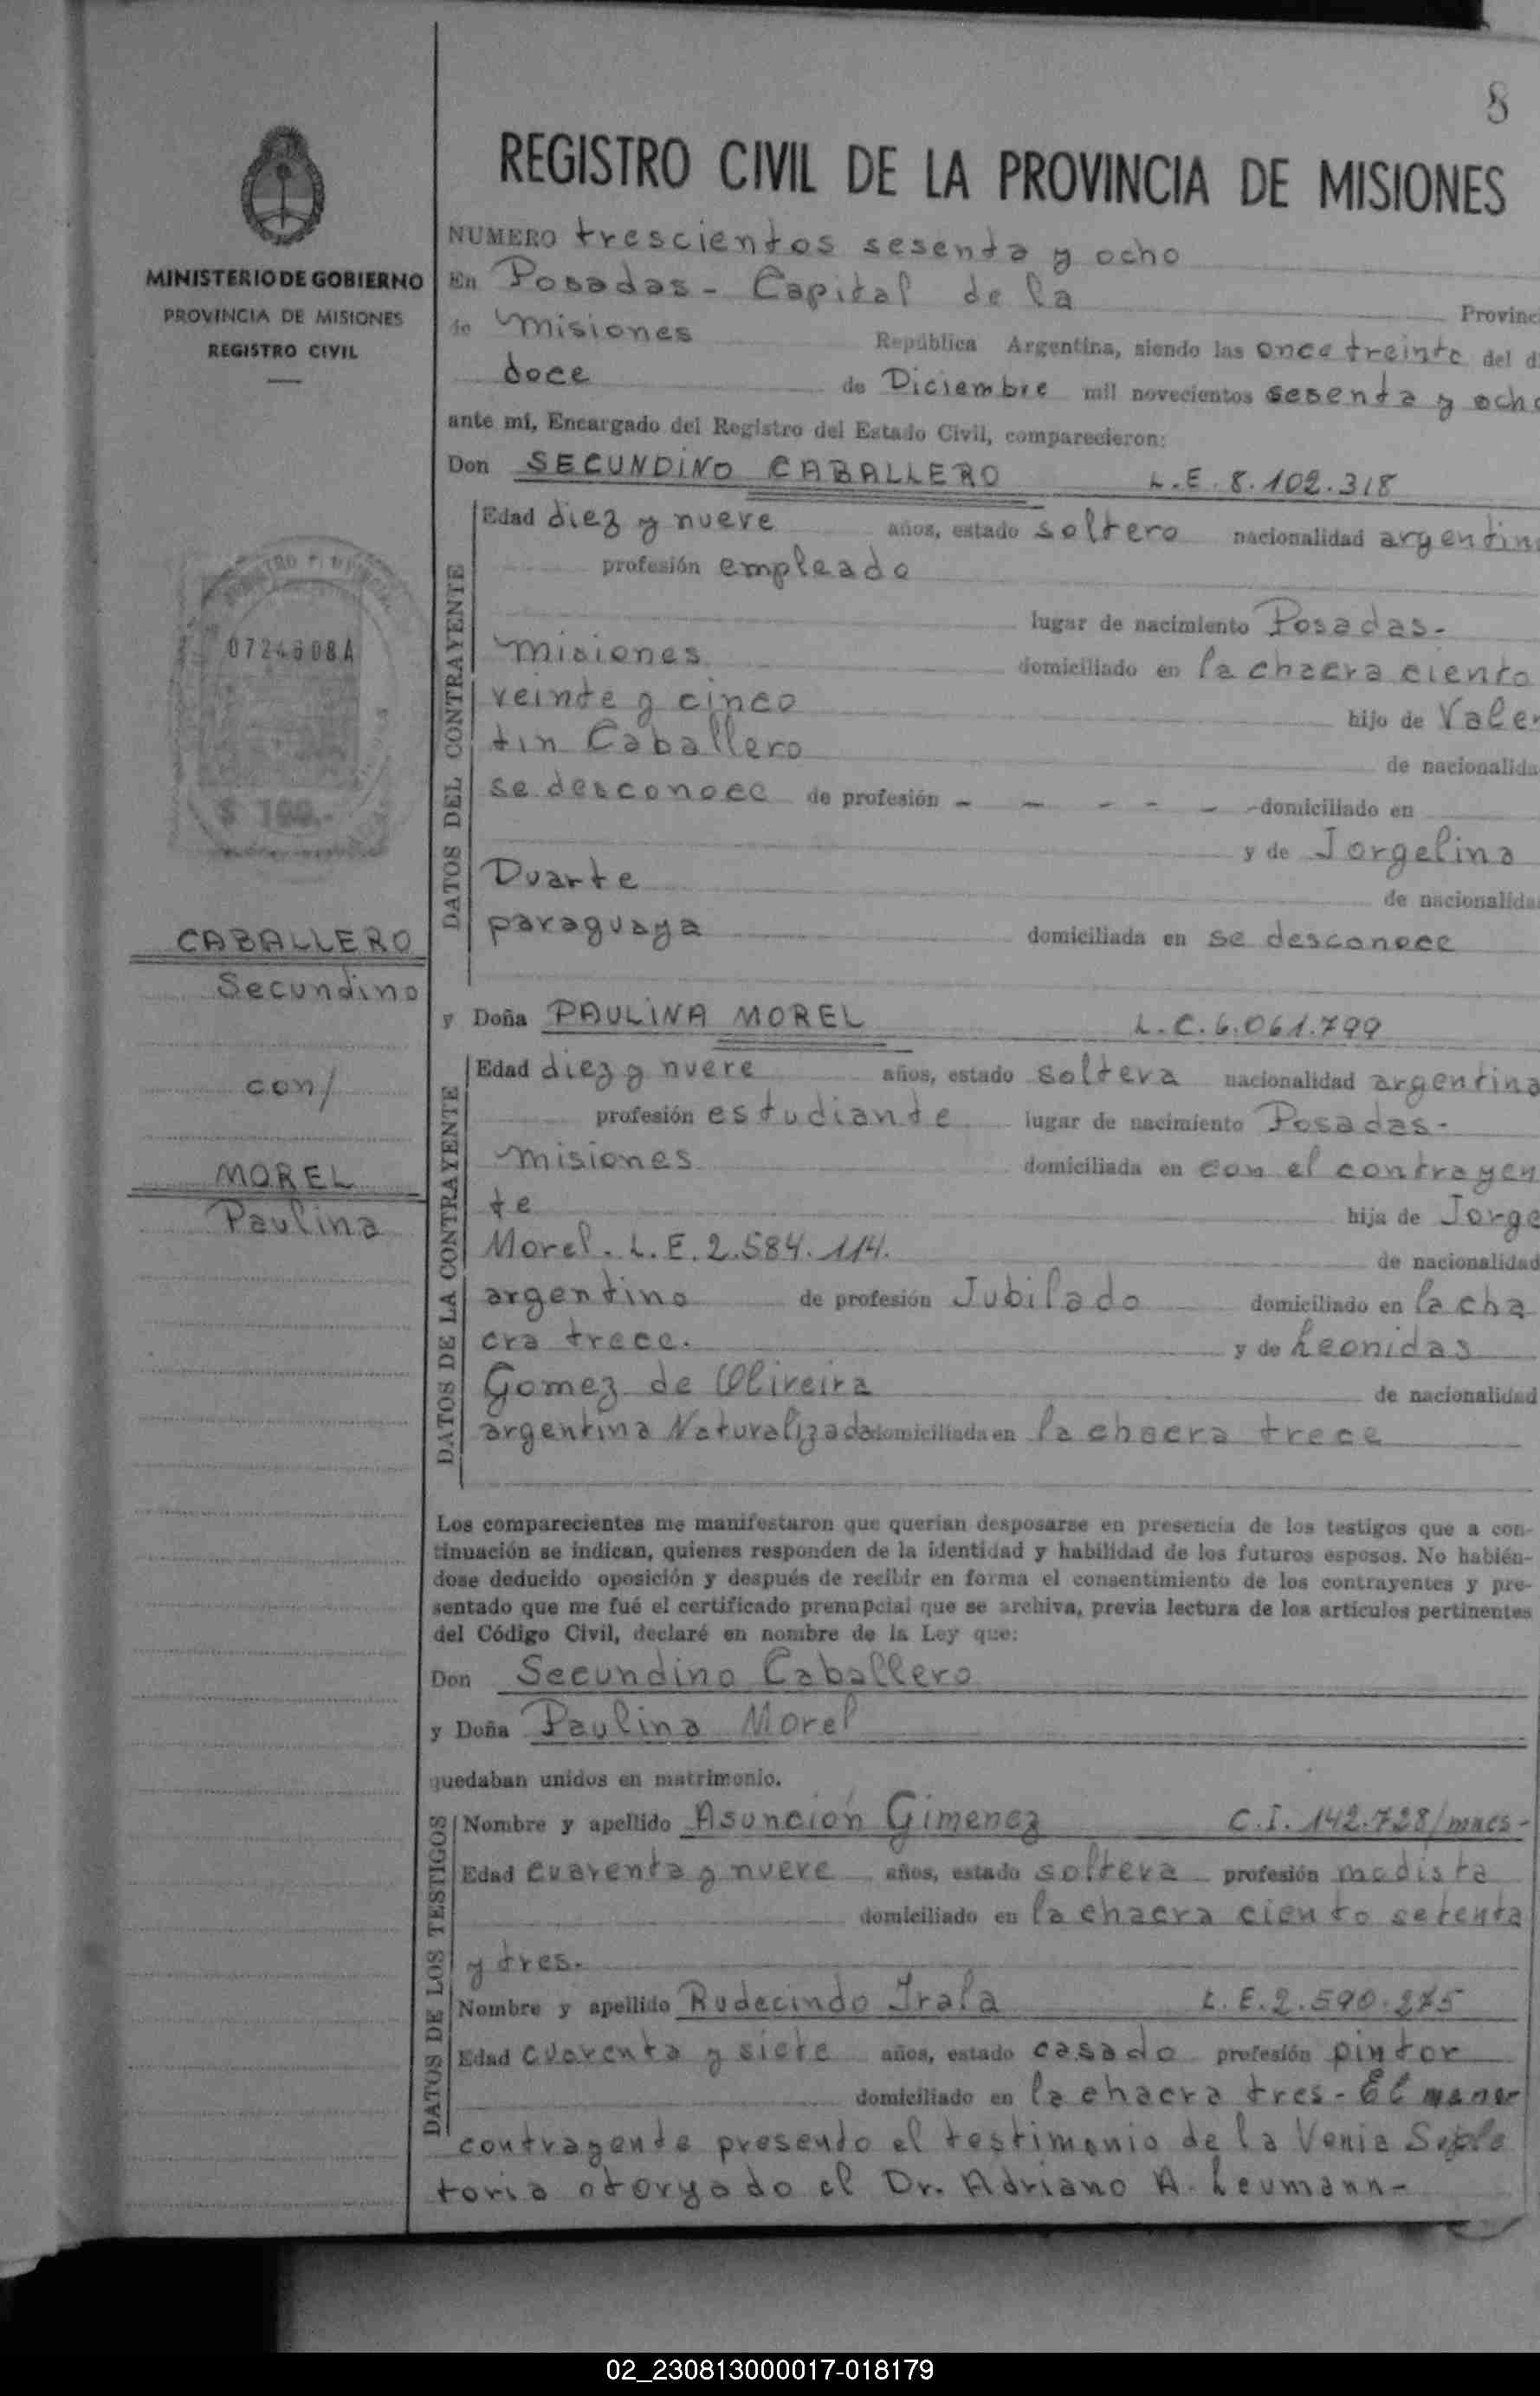 8
REGISTRO CIVIL DE LA PROVINCIA DE MISIONES
MINISTERIO DE GOBIERNO
PROVINCIA DE MISIONES
REGISTRO CIVIL
0724608A
$ 100.-
CABALLERO
Secundino
con/
MOREL
Paulina
NUMERO trescientos sesenta y ocho
En Posadas - Capital de la Provinc
de Misiones República Argentina, siendo las once treinta del d
doce de Diciembre mil novecientos sesenta y ocho
ante mi, Encargado del Registro del Estado Civil, comparecieron:
Don SECUNDINO CABALLERO L.E. 8.102.318
DATOS DEL CONTRAYENTE
Edad diez y nueve años, estado soltero nacionalidad argentino
profesión empleado
lugar de nacimiento Posadas-
Misiones domiciliado en la chacra ciento
veinte y cinco hijo de Valen
tin Caballero de nacionalida
se desconoce de profesión - - - - - -domiciliado en
y de Jorgelina
Duarte de nacionalida
paraguaya domiciliada en se desconoce
y Doña PAULINA MOREL L.C. 6.061.799
DATOS DE LA CONTRAYENTE
Edad diez y nueve años, estado soltera nacionalidad argentina
profesión estudiante lugar de nacimiento Posadas-
Misiones domiciliada en con el contrayen
te hija de Jorge
Morel. L.E. 2.584.114. de nacionalidad
argentino de profesión Jubilado domiciliado en la cha
cra trece. y de Leonidas
Gomez de Oliveira de nacionalidad
argentina Naturalizada domiciliada en la chacra trece
Los comparecientes me manifestaron que querían desposarse en presencia de los testigos que a con-
tinuación se indican, quienes responden de la identidad y habilidad de los futuros esposos. No habién-
dose deducido oposición y después de recibir en forma el consentimiento de los contrayentes y pre-
sentado que me fué el certificado prenupcial que se archiva, previa lectura de los artículos pertinentes
del Código Civil, declaré en nombre de la Ley que:
Don Secundino Caballero
y Doña Paulina Morel
quedaban unidos en matrimonio.
DATOS DE LOS TESTIGOS
Nombre y apellido Asunción Gimenez C.I. 142.728/mnes-
Edad cuarenta y nueve años, estado soltera profesión modista
domiciliado en la chacra ciento setenta
y tres.
Nombre y apellido Rudecindo Irala L.E. 2.590.275
Edad cuarenta y siete años, estado casado profesión pintor
domiciliado en la chacra tres - El menor
contrayente presento el testimonio de la Venia Suple
toria otorgado el Dr. Adriano A. Leumann-
02_230813000017-018179